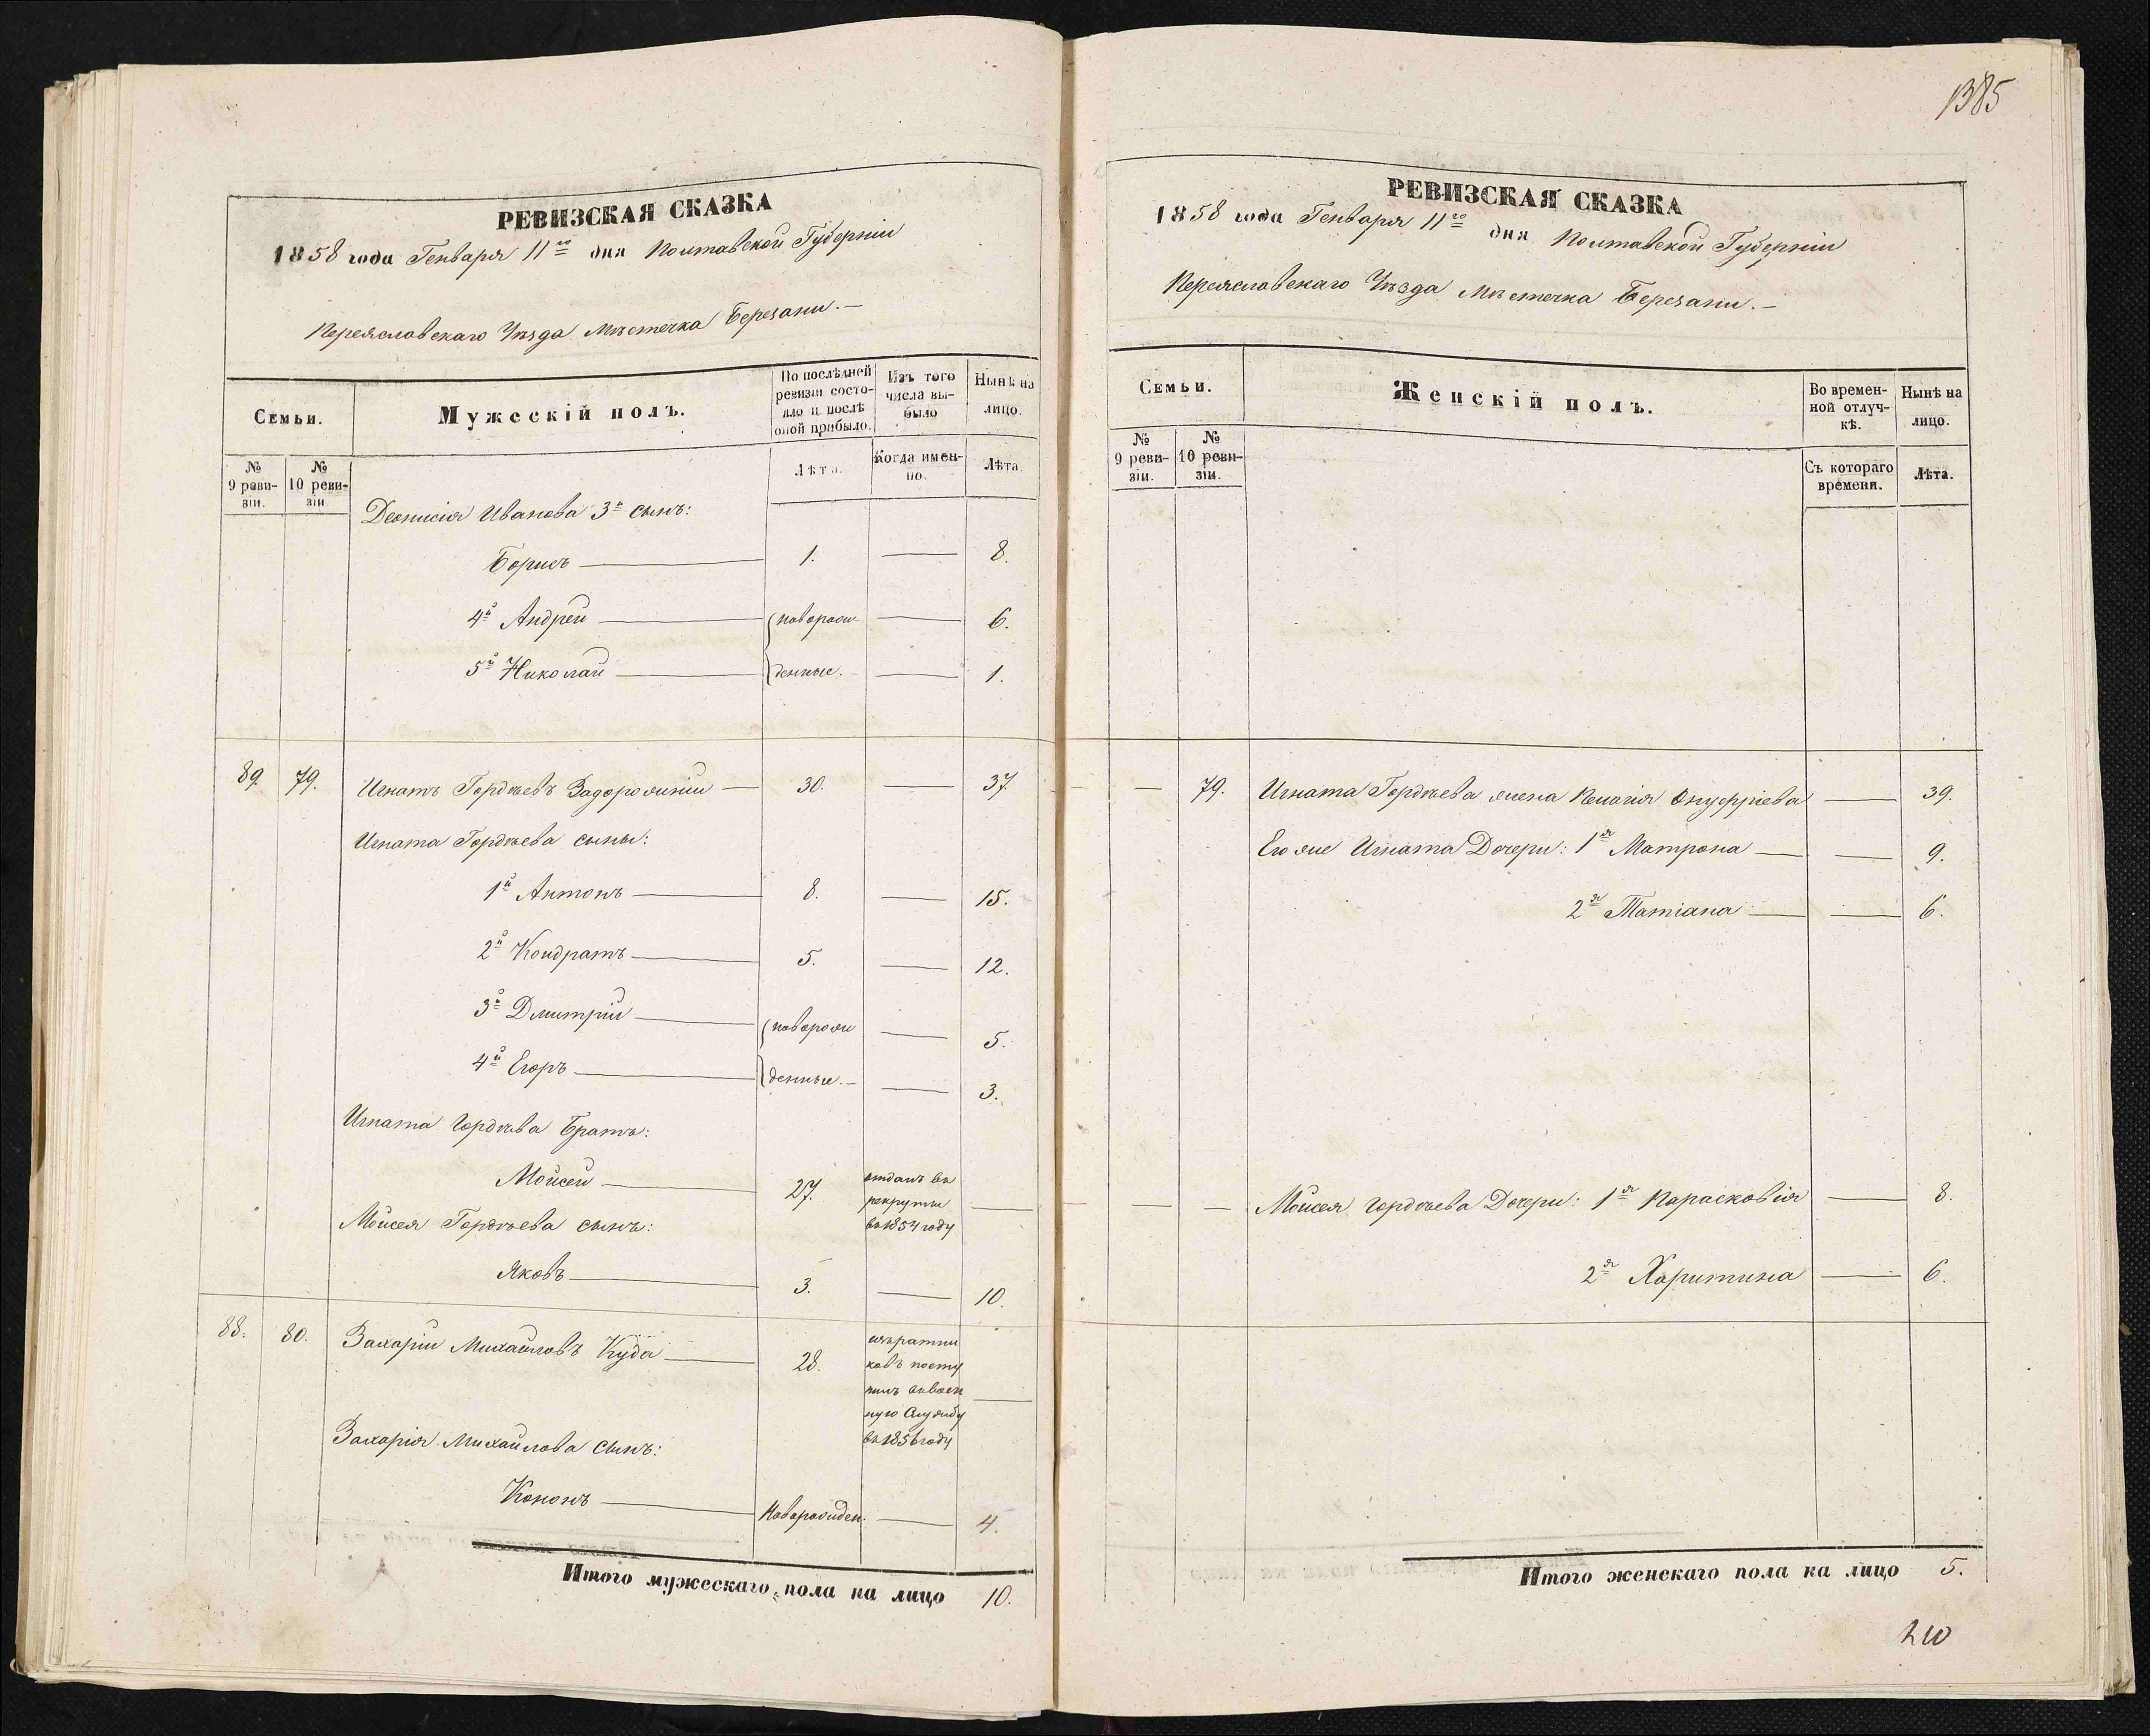 1385
РЕВИЗСКАЯ СКАЗКА
1858 года Генваря 11го дня Полтавской Губерніи
Переяславскаго Уѣзда Мѣстечка Березани.—
Семьи.
Мужескій полъ.
По послѣдней ревизіи состояло и послѣ оной прибыло.
Изъ того числа выбыло
Нынѣ на лицо.
№ 9 ревизіи.
№ 10 ревизіи
Лѣта.
Когда именно.
Лѣта.
Деонисія Иванова 3й сынъ:
Борисъ — 1. — 8.
4й Андрей — новорож — 6.
5й Николай — денные. — 1.
89. 79. Игнатъ Гордѣевъ Задорожній — 30. — 37.
Игната Гордѣева сыны:
1й Антонъ — 8. — 15.
2й Кондратъ — 5. — 12.
3й Дмитрій — новорож — 5.
4й Егоръ — денные.— — 3.
Игната Гордѣева Братъ:
Мойсей — 27. отданъ въ
рекруты —
въ 1854 году
Мойсея Гордѣева сынъ:
Яковъ — 3. — 10.
88. 80. Захарій Михайловъ Куда — 28. изъ ратни
ковъ посту
пилъ въ воен —
ную Службу
въ 1856 году
Захарія Михайлова сынъ:
Кононъ — Новорожден. — 4.
Итого мужескаго пола на лицо 10.
РЕВИЗСКАЯ СКАЗКА
1858 года Генваря 11го дня Полтавской Губерніи
Переяславскаго Уѣзда Мѣстечка Березани.—
Семьи.
Женскій полъ.
Во временной отлучкѣ.
Нынѣ на лицо.
№ 9 ревизіи.
№ 10 ревизіи.
Съ котораго времени.
Лѣта.
— 79. Игната Гордѣева жена Пелагія Онуфріева — 39.
Его же Игната Дочери: 1я Матрона — — 9.
2я Татіана — — 6.
— — Мойсея Гордѣева Дочери: 1я Парасковія — 8.
2я Харитина — 6.
Итого женскаго пола на лицо 5.